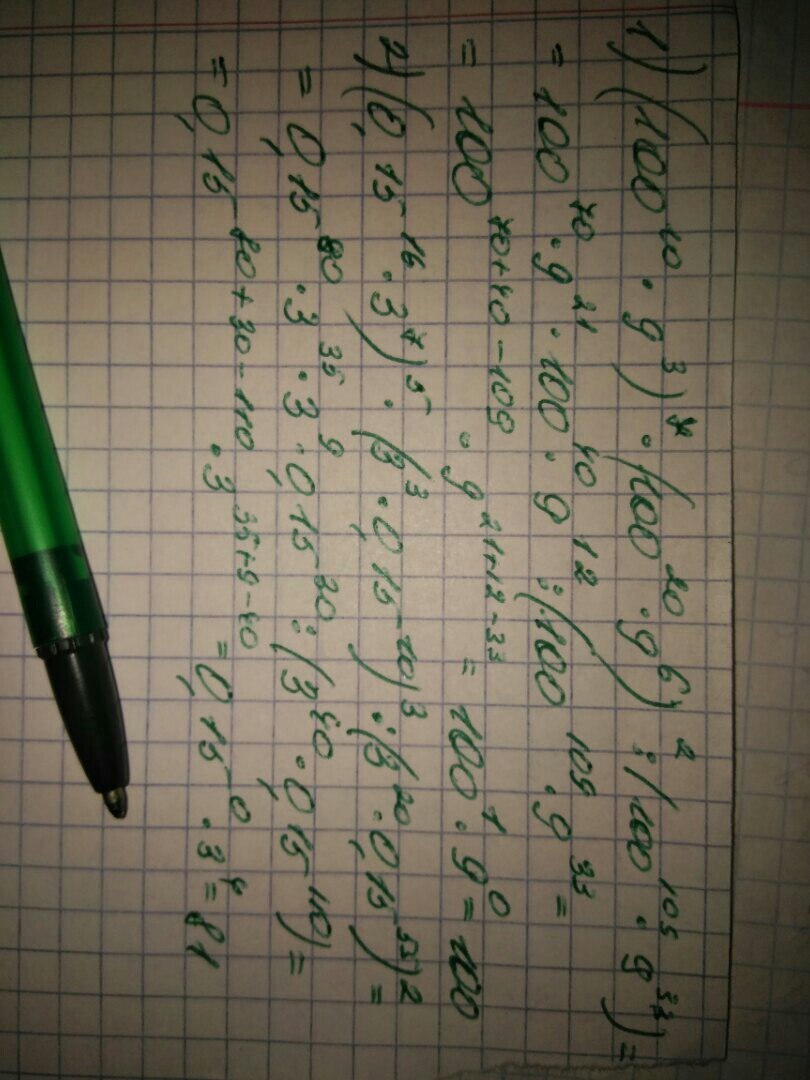 1) (100¹⁰ · 9³)⁷ · (100²⁰ · 9⁶)² : (100¹⁰⁹ · 9³³) =
= 100⁷⁰ · 9²¹ · 100⁴⁰ · 9¹² : (100¹⁰⁹ · 9³³ =
= 100⁷⁰⁺⁴⁰⁻¹⁰⁹ · 9²¹⁺¹²⁻³³ = 100¹ · 9⁰ = 100
2) (0,15¹⁶ · 3⁷)⁵ · (3³ · 0,15¹⁰)³ : (3²⁰ · 0,15⁵⁵)² =
= 0,15⁸⁰ · 3³⁵ · 3⁹ · 0,15³⁰ : (3⁴⁰ · 0,15¹¹⁰) =
= 0,15⁸⁰⁺³⁰⁻¹¹⁰ · 3³⁵⁺⁹⁻⁴⁰ = 0,15⁰ · 3⁴ = 81